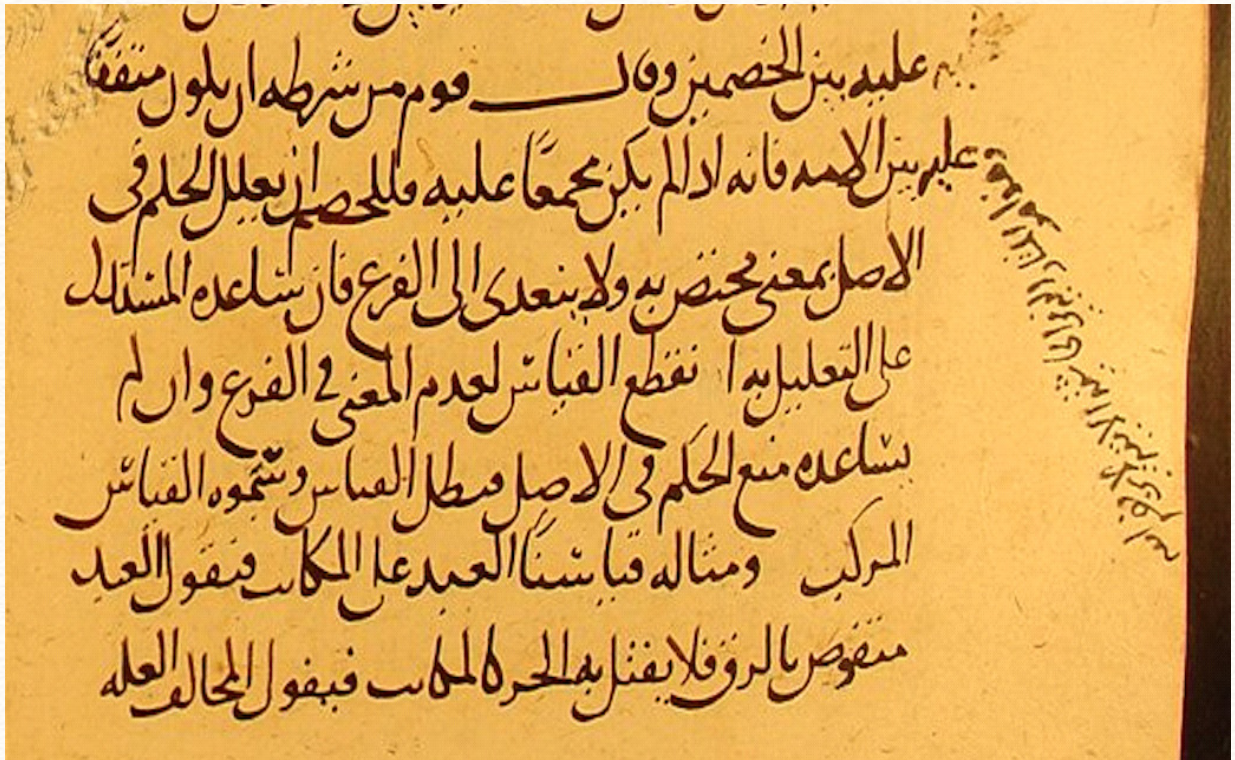 عليه بين الخصمين وقال قوم من شرطه ان يكون متفقا
عليه بين الامه فانه اذا لم يكن مجمعًا عليه فللخصم ان يعلل الحكم في
الاصل بمعنى مختص به ولا يتعدى الى الفرع فان ساعده المستدل
على التعليل به انقطع القياس لعدم المعنى في الفرع وان لم
يساعده منع الحكم في الاصل فبطل القياس وسَمَّوه القياس
المركب ومثاله قياسنا العبد على المكاتب فنقول العبد
منقوص بالرق فلا يقتل به الحر كالمكاتب فيقول المخالف العله